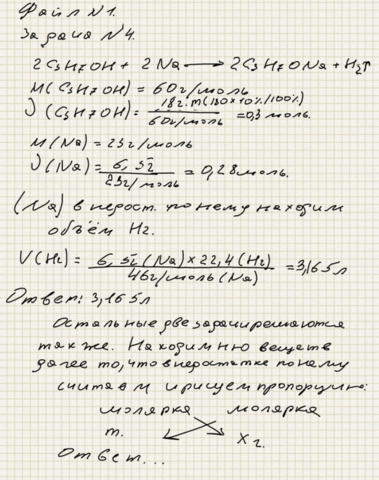 Файл №1.
Задача №4.
2C3H7OH + 2Na → 2C3H7ONa + H2↑
M(C3H7OH) = 60г/моль
ν(C3H7OH) = 18г. m(180×10%/100%) / 60г/моль = 0,3 моль.
M(Na) = 23г/моль
ν(Na) = 6,5г / 23г/моль = 0,28моль.
(Na) в нерост. по нему находим
объём H2.
V(H2) = 6,5г(Na) × 22,4(H2) / 46г/моль(Na) = 3,165л
Ответ: 3,165л
Остальные две задачи решаются
так же. Находим ню веществ
далее то, что в недостатке по нему
считаем и рисуем пропорцию:
молярка молярка
m. x г.
Ответ...